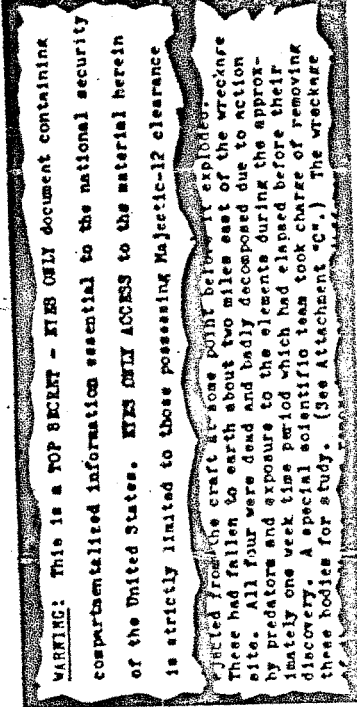 WARNING: This is a TOP SECRET - EYES ONLY document containing
compartmentalized information essential to the national security
of the United States. EYES ONLY ACCESS to the material herein
is strictly limited to those possessing Majestic-12 clearance
ejected from the craft at some point before it exploded.
These had fallen to earth about two miles east of the wreckage
site. All four were dead and badly decomposed due to action
by predators and exposure to the elements during the approx-
imately one week time period which had elapsed before their
discovery. A special scientific team took charge of removing
these bodies for study. (See Attachment "C".) The wreckage